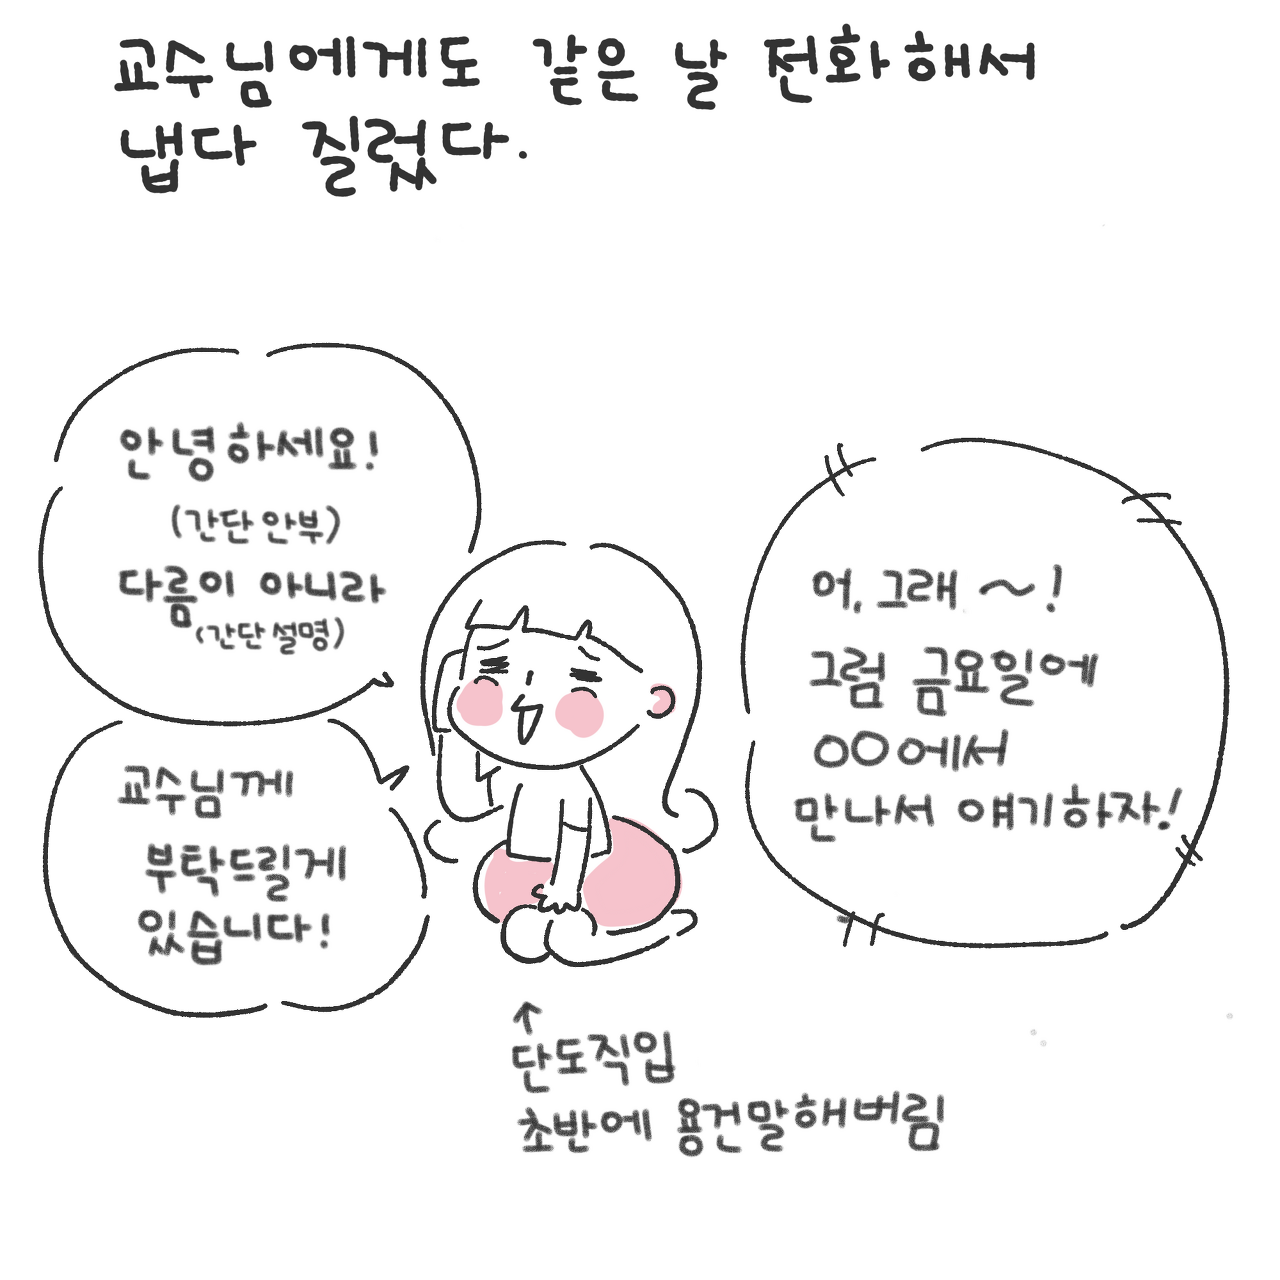 교수님에게도 같은 날 전화해서
냅다 질렀다.
안녕하세요!
(간단 안부)
다름이 아니라
(간단 설명)
교수님께
부탁드릴게
있습니다!
어, 그래 ~!
그럼 금요일에
OO에서
만나서 얘기하자!
↑
단도직입
초반에 용건말해버림